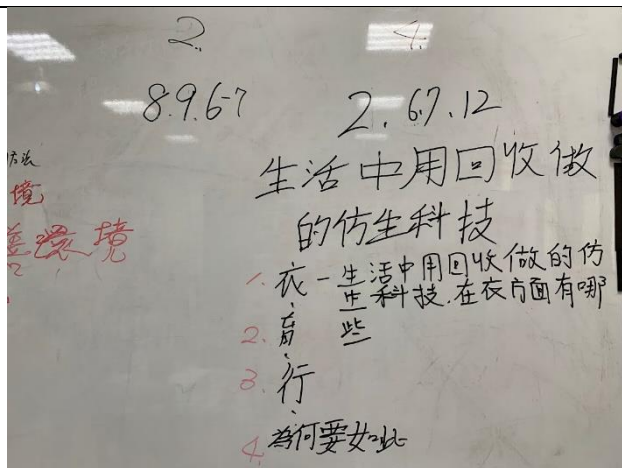 2.
4.
8.9.6-7
2.6.7.12
方法
境
善環境
生活中用回收做
的仿生科技
1. 衣-生活中用回收做的仿
生科技.在衣方面有哪
2. 育、 些
3. 行、
4. 為何要如此